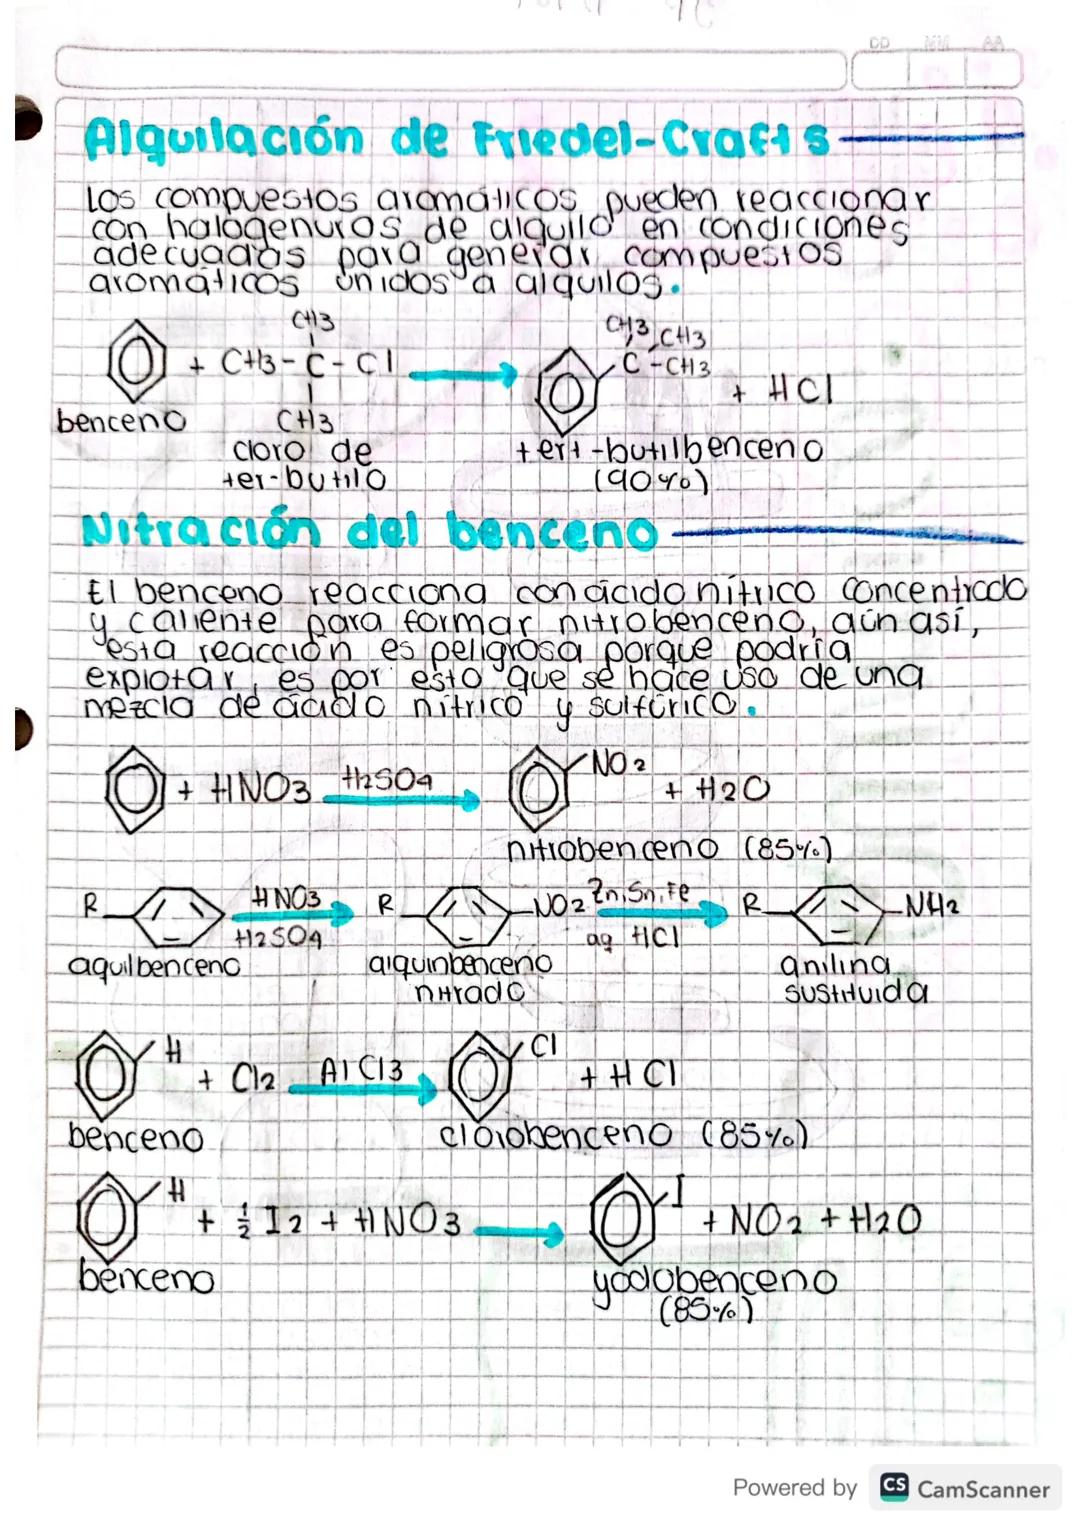 DD MM AA
Alquilación de Friedel-Crafts
Los compuestos aromáticos pueden reaccionar
con halogenuros de alquilo en condiciones
adecuadas para generar compuestos
aromáticos unidos a alquilos.
CH3
+ CH3-C-Cl
CH3
benceno
cloro de
ter-butilo
CH3 CH3
C-CH3
+ HCl
tert-butilbenceno
(90%)
Nitración del benceno
El benceno reacciona con ácido nítrico concentrado
y caliente para formar nitrobenceno, aún así,
esta reacción es peligrosa porque podría
explotar, es por esto que se hace uso de una
mezcla de ácido nítrico y sulfúrico.
+ HNO3 H2SO4 NO2 + H2O
nitrobenceno (85%)
R HNO3 R NO2 Zn, Sn, Fe R NH2
H2SO4 aq HCl
aquilbenceno alquinbenceno anilina
nitrado sustituida
H + Cl2 AlCl3 Cl + HCl
benceno clorobenceno (85%)
H + ½ I2 + HNO3 I + NO2 + H2O
benceno yodobenceno
(85%)
Powered by CS CamScanner